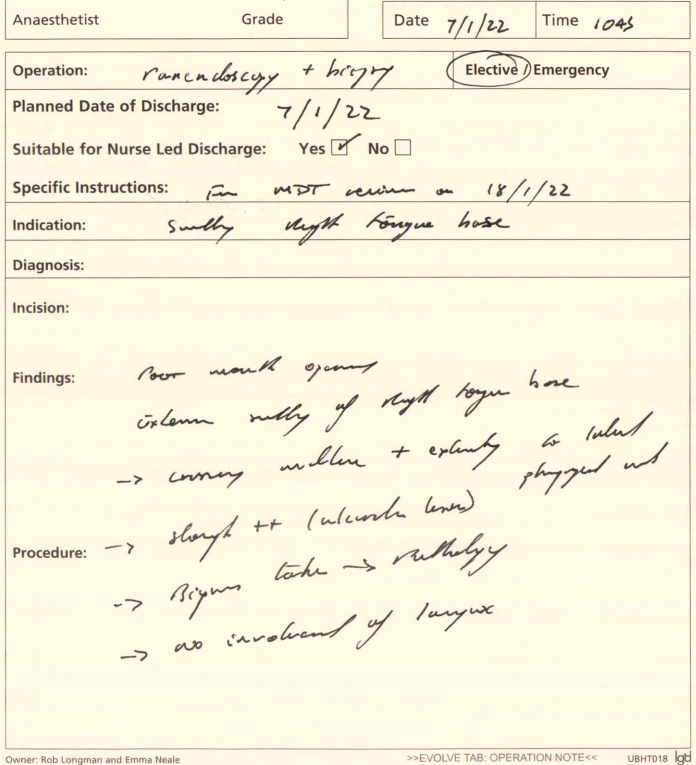 Anaesthetist Grade Date 7/1/22 Time 1045
Operation: panendoscopy + biopsy Elective / Emergency
Planned Date of Discharge: 7/1/22
Suitable for Nurse Led Discharge: Yes ☑ No ☐
Specific Instructions: For MDT review on 18/1/22
Indication: Swelling right tongue base
Diagnosis:
Incision:
Findings: Poor mouth opening
Extensive swelling of right tongue base
-> crossing midline + extending to lateral
pharyngeal wall
-> slough ++ (ulcerated lesion)
Procedure:
-> Biopsies taken -> Pathology
-> no involvement of larynx
Owner: Rob Longman and Emma Neale >>EVOLVE TAB: OPERATION NOTE<< UBHT018 lgd